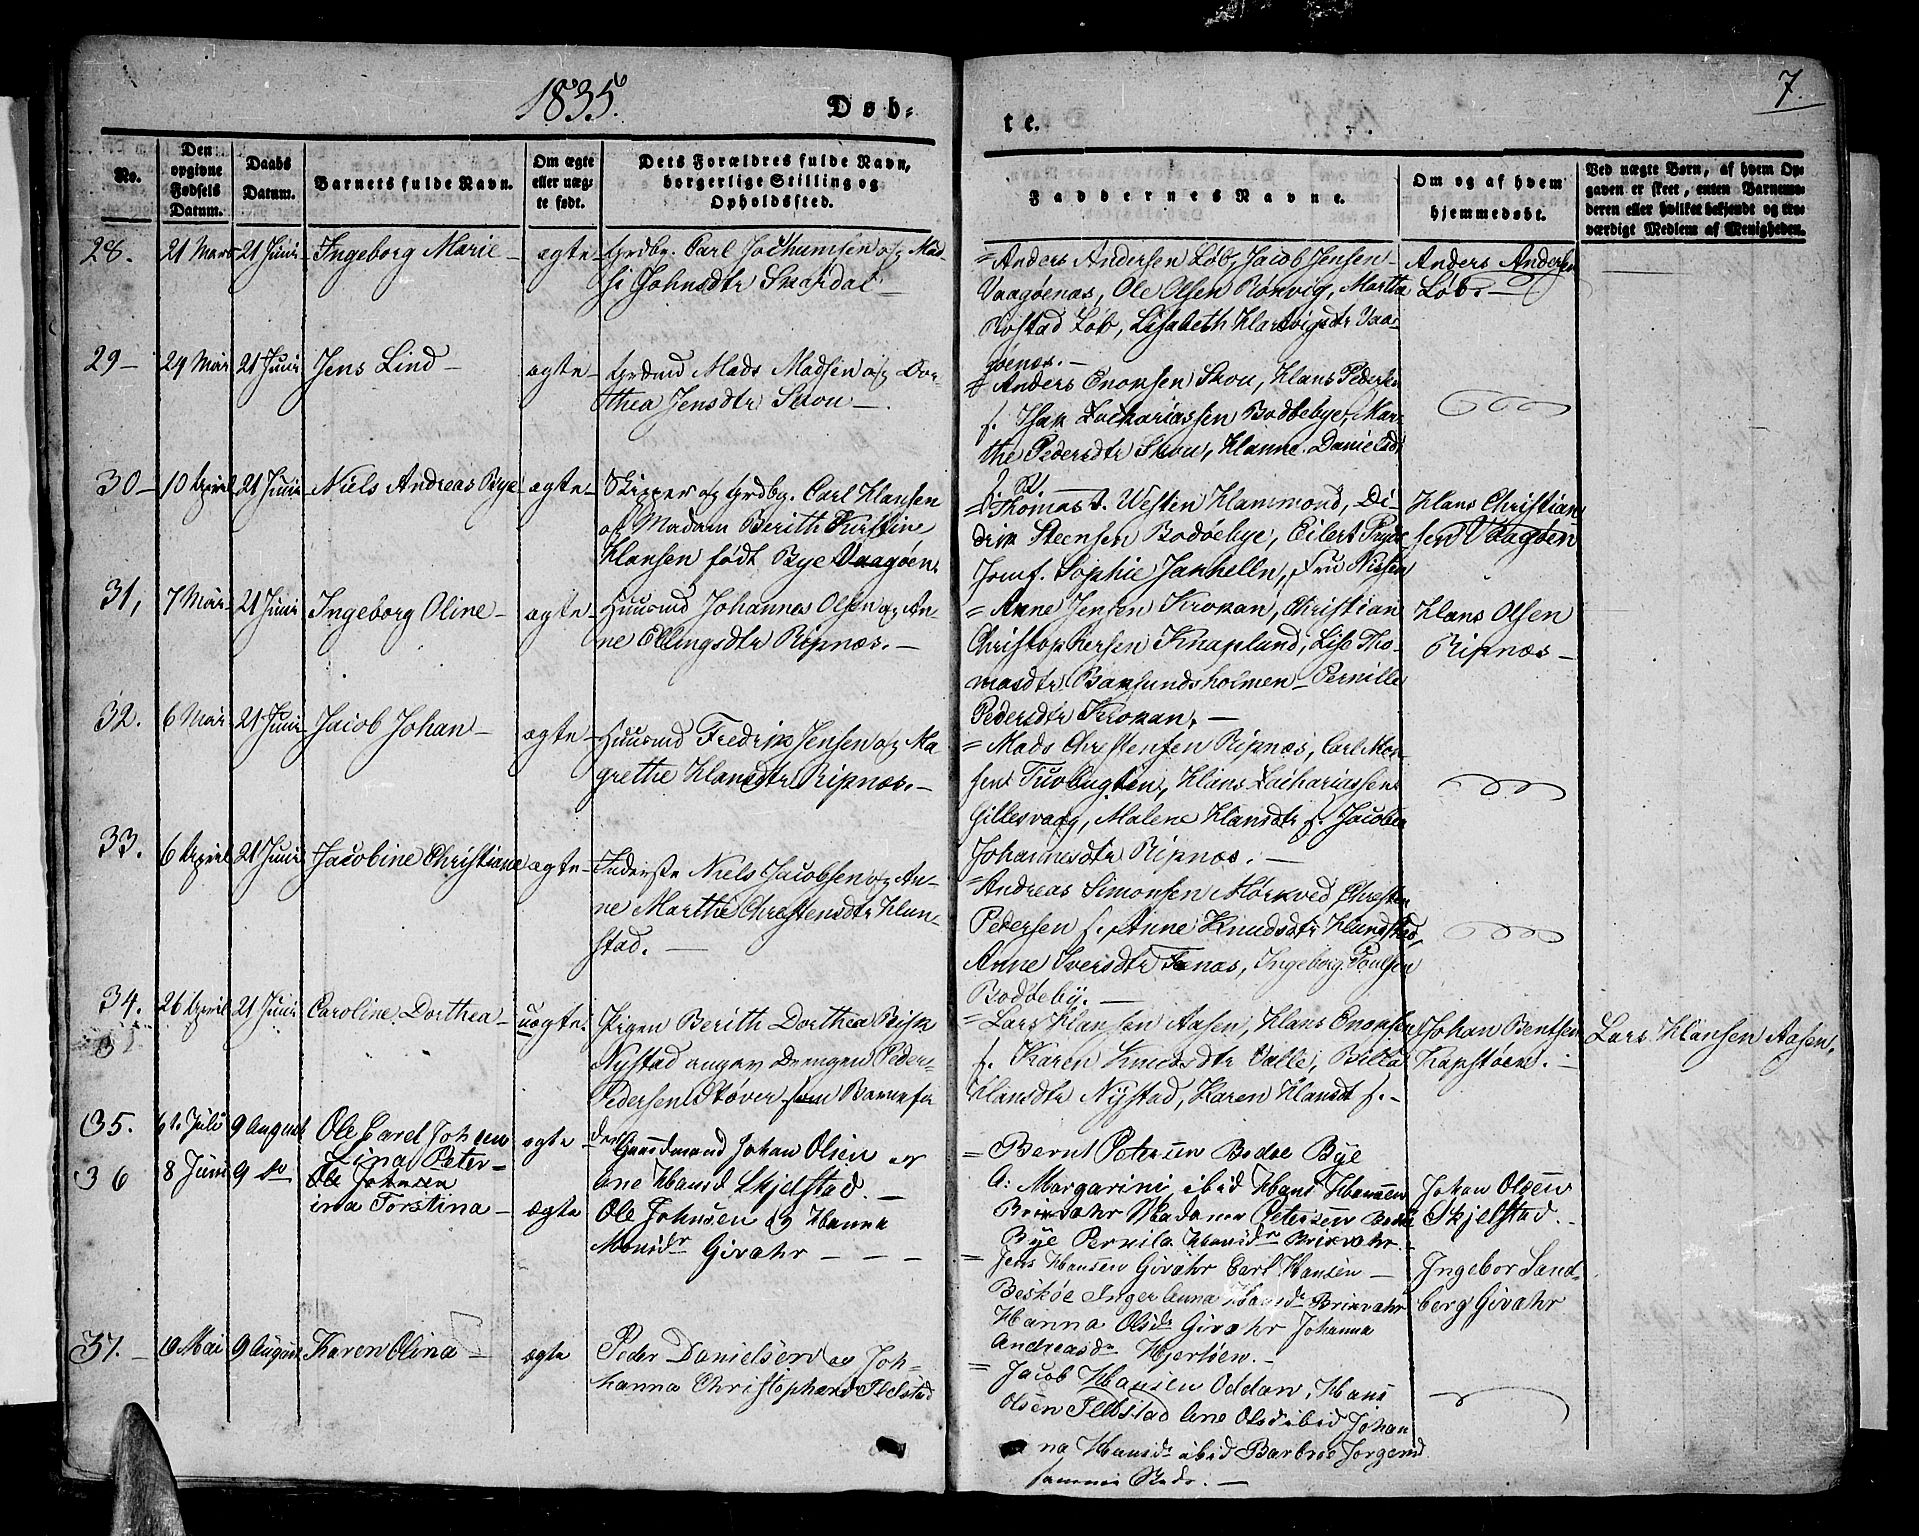 1835.
Døb-
te.
7
No.
Den opgivne Fødsels Datum.
Daabs Datum.
Barnets fulde Navn.
Om ægte eller uæg-te født.
Dets Forældres fulde Navn, borgerlige Stilling og Opholdssted.
Faddernes Navne.
Om og af hvem hjemmedøbt.
Ved uægte Børn, af hvem Op-gaven er skeet, enten Barnemo-deren eller hvilket bekjendt og tro-værdigt Medlem af Menigheden.
28. 21 Mars 21 Juni Ingeborg Marie - ægte - Grdbg. Carl Jochumsen og Mad-
si Johnsdtr Snordal -
= Anders Andersen Løb, Jacob Jensen
Vaagøenæs, Ole Olsen Rønvig, Martha
Rostad Løb, Lisabeth Hartvigsdtr Vaa-
gøenæs. -
Anders Andersen
Løb. -
29 - 29 Mar 21 Juni Jens Lind - ægte - Grdmd Mads Madsen og Dor-
thea Jensdtr Skou -.
= Anders Enoksen Skou, Hans Pedersen
s. Isak Zachariassen Bodøebye, Mar-
the Pedersdtr Skou, Hanne Danielsdtr
30 - 10 April 21 Juni Niels Andreas Bye ægte - Skipper og Grdbg. Carl Hansen
og Madam Berith Kirstine
Hansen født Bye Vaagøen.
= Thomas v. Westen Hammond, Di-
drik Steensen Bodøebye, Eilert Pryde
Jomf. Sophie Jannelln, Fru Nissen
Hans Christian
sen Vaagøen
31, 7 Mar 21 Juni Ingeborg Oline - ægte - Huusmd Johannes Olsen og An-
ne Ellingsdtr Ripnæs. -
= Anne Jensen Krokan, Christian
Christophersen Knapland, Lise Tho-
masdtr Baksundsholmen - Pernille
Pedersdtr Krokan. -
Hans Olsen
Ripnæs -
32. 6 Mar 21 Juni Jacob Johan - ægte - Huusmd Fredrik Jensen og Ma-
grethe Hansdtr Ripnæs. -
= Mads Christensen Ripnæs, Carl Mor-
sen Tuvbugten, Hans Zachariassen
Gillesvaag, Malene Hansdtr s. Jacobea
Johannesdtr Ripnæs. -
33. 6 April 21 Juni Jacobine Christiane ægte - Inderste Niels Jacobsen og An-
ne Marthe Christensdtr Hun-
stad. -
= Andreas Simonsen Mørkved Christen
Pedersen s. Anne Knudsdtr Hundstad,
Anne Iversdtr Fenæs, Ingeborg Poulsen
Bodøeby. -
34. 26 April 21 Juni Caroline Dorthea - uægte. Pigen Berith Dorthea Bisk
Nystad angav Drengen Peder
Pedersen Støver som Barnefa
der
= Lars Hansen Aasen, Hans Enoksen
s. Karen Knudsdtr Valle, Bilta
Hansdtr Nystad, Karen Hansdt s. -
Johan Bentsen
Kapstøen. -
Lars Hansen Aasen.
35. 61. Juli 9 August Ole Carel Johsen ægte Gaardmand Johan Olsen og
Ane Hansd Skjelstad. -
= Bernt Petersen Bodøe Bye
A: Margarini ibid Hans Hansen
Brixvahr Madame Petersen Bodø
Bye Pernila Hansdr Brixvahr.
Johan Olsen
Skjelstad. -
36 8 Juni 9 do Lina Peter-
Ole Johnsen
ina Torstina - ægte Ole Johnsen & Hanna
Monsdr Givahr - - -
= Jens Hansen Givahr Carl Hansen -
Beskøe Inger Anna Hansdr Brixvahr
Hanna Olsdr Givahr Johanna
Andreasdr Hjertøen. -
Ingebor Sand-
berg Givahr
37. - 9 Mai 9 August Karen Olina - ægte Peder Danielsen og Joh-
hanna Christophersd Ilstad
= Jacob Hansen Oddan, Hans
Olsen Ilstad Ane Olsd ibid Johan
na Hansdr ibid Barbroe Jorgensd
samme Sted. -